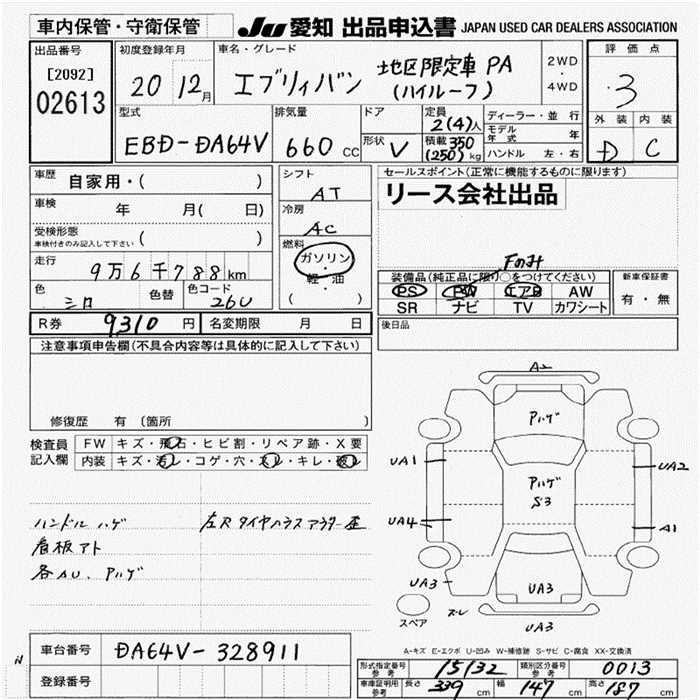 車内保管・守衛保管
JU 愛知 出品申込書 JAPAN USED CAR DEALERS ASSOCIATION
出品番号
[2092]
02613
初度登録年月
20 12月
車名・グレード
エブリィバン 地区限定車 PA
(ハイルーフ)
2WD
・
4WD
評価点
3
外装 内装
D C
型式
EBD-DA64V
排気量
660 CC
ドア
形状 V
定員 2(4)人
積載 350
(250) kg
ディーラー・並行
モデル年式 年
ハンドル 左・右
車歴 自家用・( )
車検 年 月( 日)
受検形態
車検付きのみ記入して下さい ( )
走行 9万6千788km
色 シロ 色替 色コード 26U
シフト
AT
冷房
AC
燃料
ガソリン
・
軽・油
( )
セールスポイント(正常に機能するものに限ります)
リース会社出品
Fのみ
装備品(純正品に限り○をつけてください)
PS PW エアB AW
SR ナビ TV カワシート
新車保証書
有・無
R券 9310円 名変期限 月 日
後日品
注意事項申告欄(不具合内容等は具体的に記入して下さい)
修復歴 有 (箇所 )
検査員
記入欄
FW キズ・飛石・ヒビ割・リペア跡・X要
内装 キズ・汚レ・コゲ・穴・スレ・キレ・破レ
ハンドル ハゲ 左R タイヤハウスアウター 歪
看板アト
各AU、Pハゲ
A2
Pハゲ
UA1
UA2
Pハゲ
S3
UA4
A1
UA3
UA3
スレ
UA3
スペア
A-キズ E-エクボ U-凹み W-補修跡 S-サビ C-腐食 XX-交換済
車台番号 DA64V-328911
登録番号
形式指定番号
参考 15132 類別区分番号
参考 0013
車庫証明用
参考 長さ 339 cm 幅 147 cm 高さ 187 cm